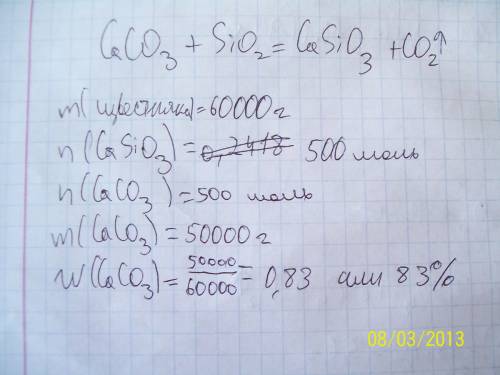 CaCO₃ + SiO₂ = CaSiO₃ + CO₂↑
m(известняка) = 60000 г
n(CaSiO₃) = 0,2418 500 моль
n(CaCO₃) = 500 моль
m(CaCO₃) = 50000 г
w(CaCO₃) = 50000/60000 = 0,83 или 83%
08/03/2013